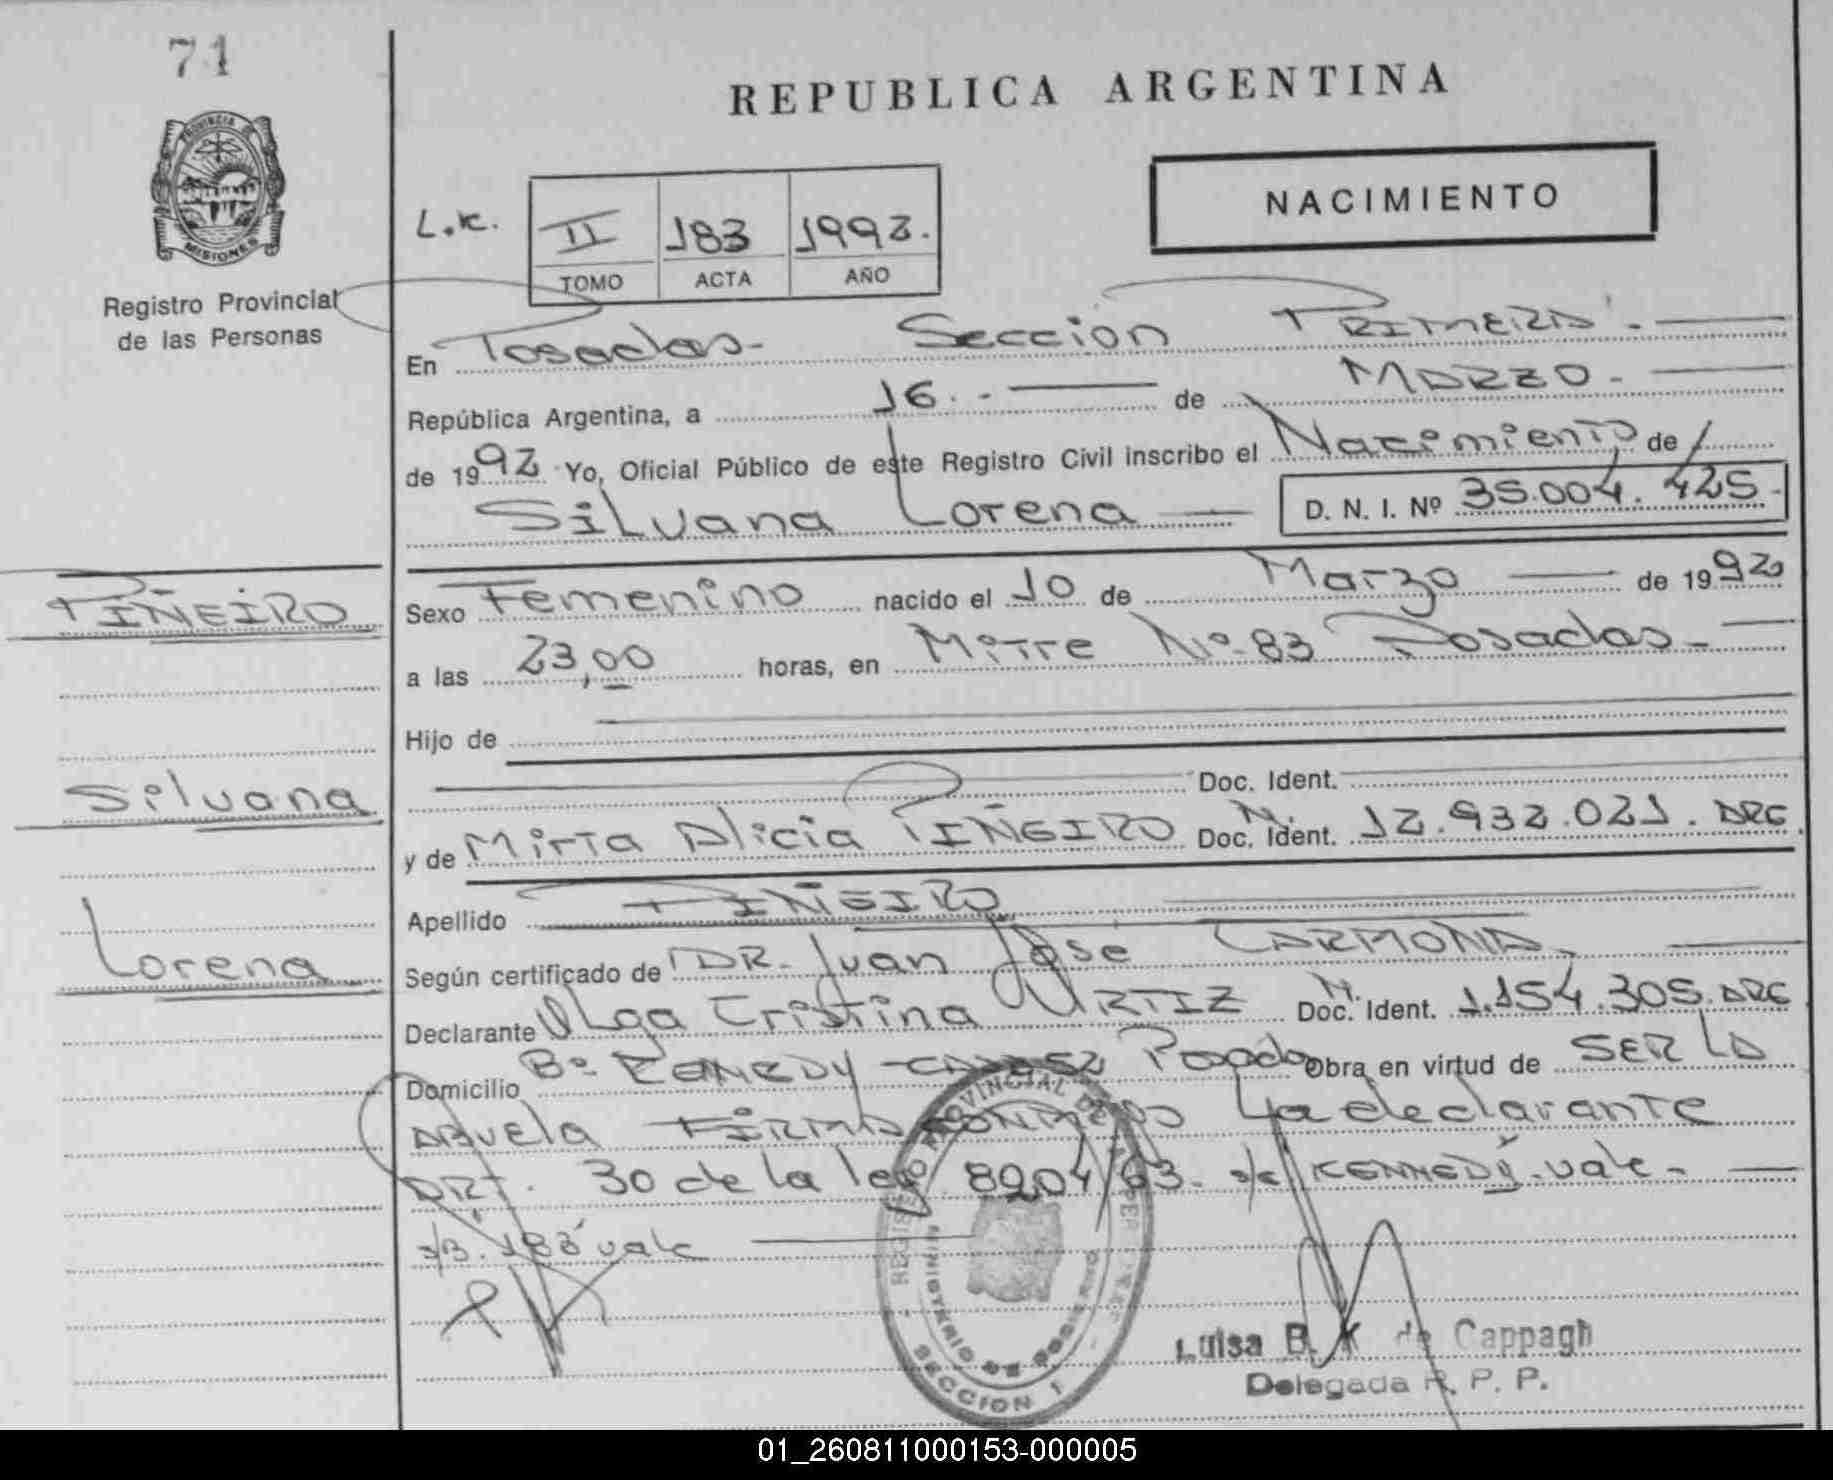 71
REPUBLICA ARGENTINA
PROVINCIA DE
MISIONES
Registro Provincial
de las Personas
L.K.
II 183 1992.
TOMO ACTA AÑO
NACIMIENTO
En Posadas- Sección PRIMERA.-
República Argentina, a 16.- de MARZO.-
de 1992 Yo, Oficial Público de este Registro Civil inscribo el Nacimiento de
Silvana Lorena
D. N. I. Nº 35.004.425-
PIÑEIRO
Silvana
Lorena
Sexo Femenino nacido el 10 de Marzo de 1992
a las 23,00 horas, en Mitre Nº 83 Posadas-
Hijo de
Doc. Ident.
y de Mirta Alicia PIÑEIRO Doc. Ident. N. 12.932.021. ARG.
Apellido PIÑEIRO
Según certificado de DR. Juan José CARMONA
Declarante Olga Cristina URTIZ Doc. Ident. N. 1.154.305. ARG
Domicilio Bº KENEDY Posadas Obra en virtud de SER LA
ABUELA FIRMA CON MIGO La declarante
ART. 30 de la ley 8204/63. s/c KENNEDY. vale-
s/B. 183 vale
REGISTRO PROVINCIAL DE
MINISTERIO DE GOBIERNO
SECCION 1
Luisa B. K de Cappagh
Delegada R. P. P.
01_260811000153-000005